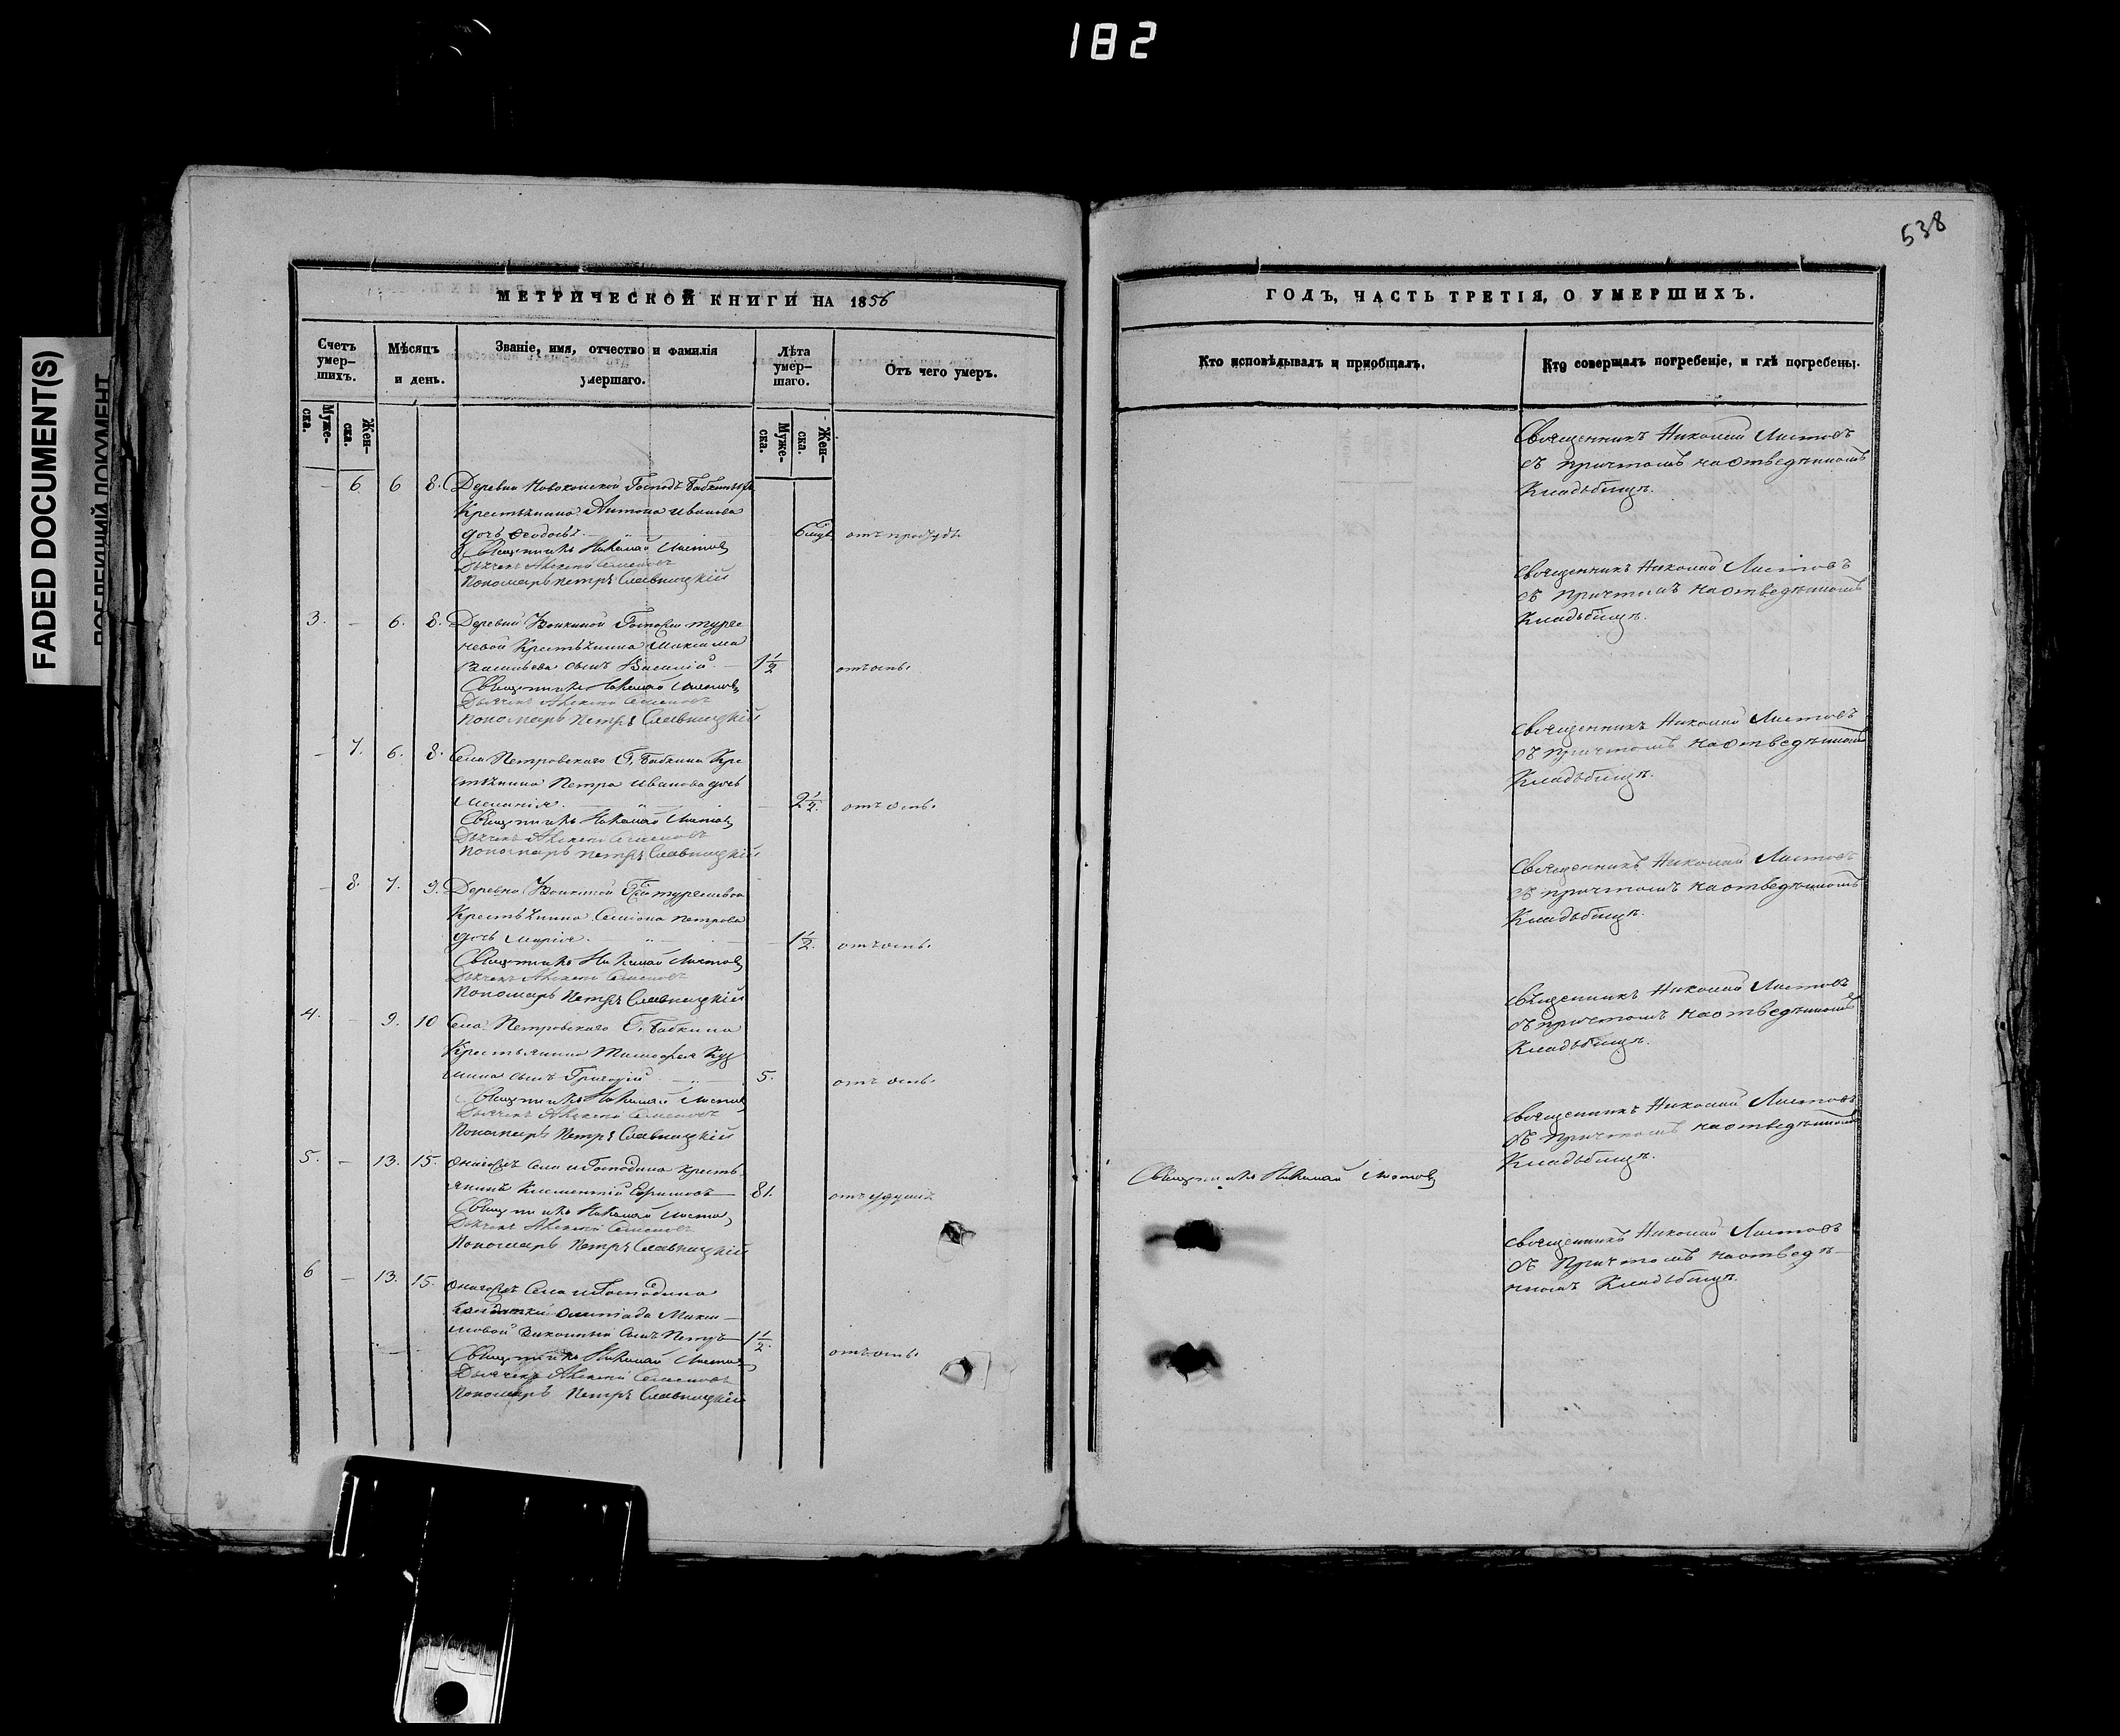 182
538
FADED DOCUMENT(S)
МЕТРИЧЕСКОЙ КНИГИ НА 1856
Счетъ умер-шихъ.
Мѣсяцъ и день.
Званіе, имя, отчество и фамилія умершаго.
Лѣта умер-шаго.
Отъ чего умеръ.
Муже-ска.
Жен-ска.
Муже-ска.
Жен-ска.
6 6 8. Деревни Новоконской Господъ Бабкиныхъ
Крестьянина Антона Иванова
дочь Феодосья 6 мцъ
Священникъ Николай Листовъ
Дьячекъ Алексей Семеновъ
Пономарь Петръ Славницкій
3. - 6. 8. Деревни Госпожи Турге
невой Крестьянина Максима
Васильева сынъ Василій 1 1/2 отъ оспы.
Священникъ Николай Листовъ
Дьячекъ Алексей Семеновъ
Пономарь Петръ Славницкій
- 7. 6. 8. Села Петровскаго Г. Бабкина Кре
стьянина Петра Иванова дочь
Меланія 2 1/2. отъ оспы.
Священникъ Николай Листовъ
Дьячекъ Алексей Семеновъ
Пономарь Петръ Славницкій
- 8. 7. 9. Деревни Тургеневой
Крестьянина Семіона Петрова
дочь Марія 1 1/2. отъ оспы.
Священникъ Николай Листовъ
Дьячекъ Алексей Семеновъ
Пономарь Петръ Славницкій
4. - 9. 10 Села Петровскаго Г. Бабкина
Крестьянина Тимофея Куз
мина сынъ Григорій 5. отъ оспы.
Священникъ Николай Листовъ
Дьячекъ Алексей Семеновъ
Пономарь Петръ Славницкій
5. - 13. 15. Онагожъ Села и Господина Кресть
янинъ Климентій Ефимовъ 81. отъ удушья
Священникъ Николай Листовъ
Дьячекъ Алексей Семеновъ
Пономарь Петръ Славницкій
6 - 13. 15. Онагожъ Села и Господина
Солдатки Олимпіады Макси
мовой законный сынъ Петръ 1 1/2. отъ оспы.
Священникъ Николай Листовъ
Дьячекъ Алексей Семеновъ
Пономарь Петръ Славницкій
ГОДЪ, ЧАСТЬ ТРЕТІЯ, О УМЕРШИХЪ.
Кто исповѣдывалъ и пріобщалъ.
Кто совершалъ погребеніе, и гдѣ погребены.
Священникъ Николай Листовъ
съ причтомъ на отведенномъ
Кладбищѣ.
Священникъ Николай Листовъ
съ Причтомъ на отведенномъ
Кладбищѣ.
Священникъ Николай Листовъ
съ Причтомъ на отведенномъ
Кладбищѣ.
Священникъ Николай Листовъ
съ причтомъ на отведенномъ
Кладбищѣ.
Священникъ Николай Листовъ
съ причтомъ на отведенномъ
Кладбищѣ.
Священникъ Николай Листовъ
Священникъ Николай Листовъ
съ Причтомъ на отведенномъ
Кладбищѣ.
Священникъ Николай Листовъ
съ Причтомъ на отведѣ-
нномъ Кладбищѣ.